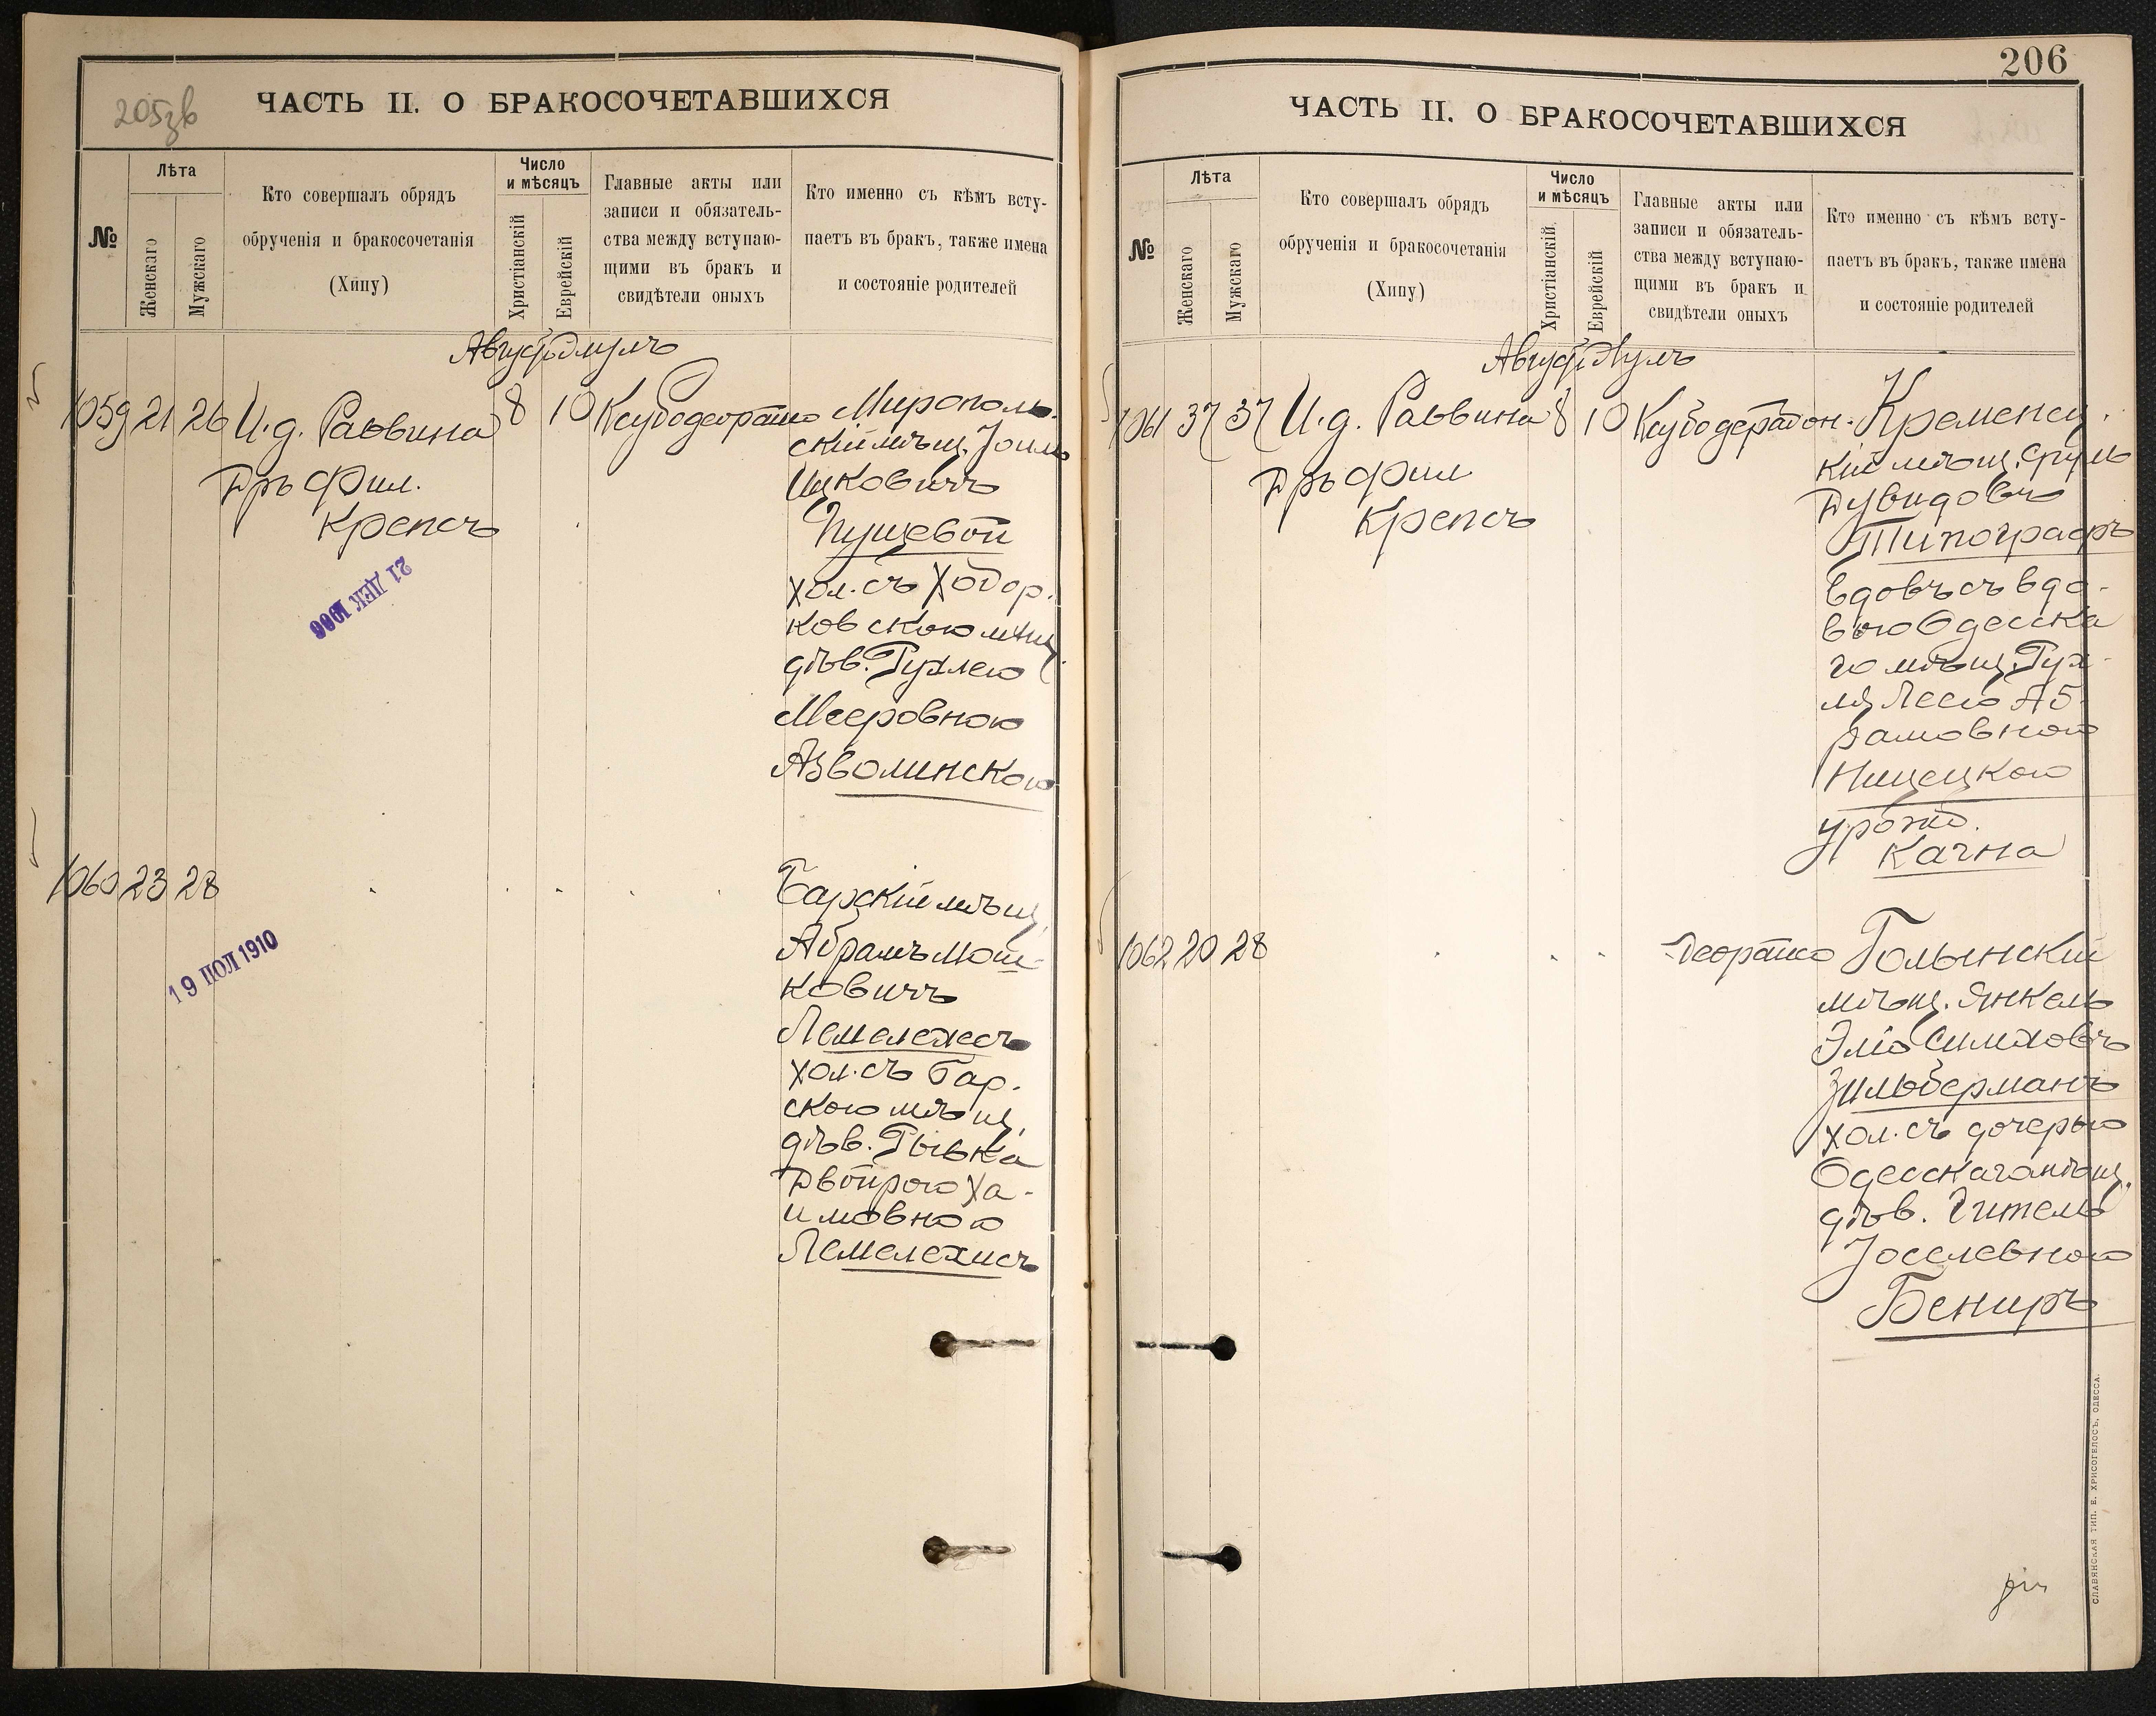 205зв
ЧАСТЬ II. О БРАКОСОЧЕТАВШИХСЯ
№
Лѣта
Женскаго
Мужскаго
Кто совершалъ обрядъ
обрученія и бракосочетанія
(Хипу)
Число
и мѣсяцъ
Христіанскій
Еврейскій
Главные акты или
записи и обязатель-
ства между вступаю-
щими въ бракъ и
свидѣтели оныхъ
Кто именно съ кѣмъ всту-
паетъ въ бракъ, также имена
и состояніе родителей
Августъ Элулъ
1059 21 26 И.д. Раввина 8 10
Д-ръ Фил.
Крепсъ
21 ДЕК
Мирополь-
скій мѣщ.
Ицковичъ
Пушевой
хол. съ Ходор-
ковскою мѣщ.
дѣв. Рухлею
Мееровною
Азволинскою
1060 23 28
19 ПОЛ 1910
Барскій мѣщ.
Абрамъ Мош-
ковичъ
Лемелехесъ
хол. съ Бар-
скою мѣщ.
дѣв.
Двойрою Ха-
имовною
Лемелехисъ
206
ЧАСТЬ II. О БРАКОСОЧЕТАВШИХСЯ
№
Лѣта
Женскаго
Мужскаго
Кто совершалъ обрядъ
обрученія и бракосочетанія
(Хипу)
Число
и мѣсяцъ
Христіанскій
Еврейскій
Главные акты или
записи и обязатель-
ства между вступаю-
щими въ бракъ и
свидѣтели оныхъ
Кто именно съ кѣмъ всту-
паетъ въ бракъ, также имена
и состояніе родителей
Августъ Элулъ
1061 37 37 И.д. Раввина 8 10
Д-ръ Фил
Крепсъ
Кременец-
кій мѣщ. Сруль
Дувидовъ
Типографъ
вдовъ съ вдо-
вою Одесска
го мѣщ. Рух-
ля Лею Аб-
рамовною
Ницецкою
урожд.
Качна
1062 20 28
Голынскій
мѣщ. Янкель
Эліо Симховъ
Зильберманъ
хол. съ дочерью
Одесскаго мѣщ.
дѣв. Гитель
Іоселевною
Бениръ
СЛАВЯНСКАЯ ТИП. Е. ХРИСОГЕЛОСЪ, ОДЕССА.